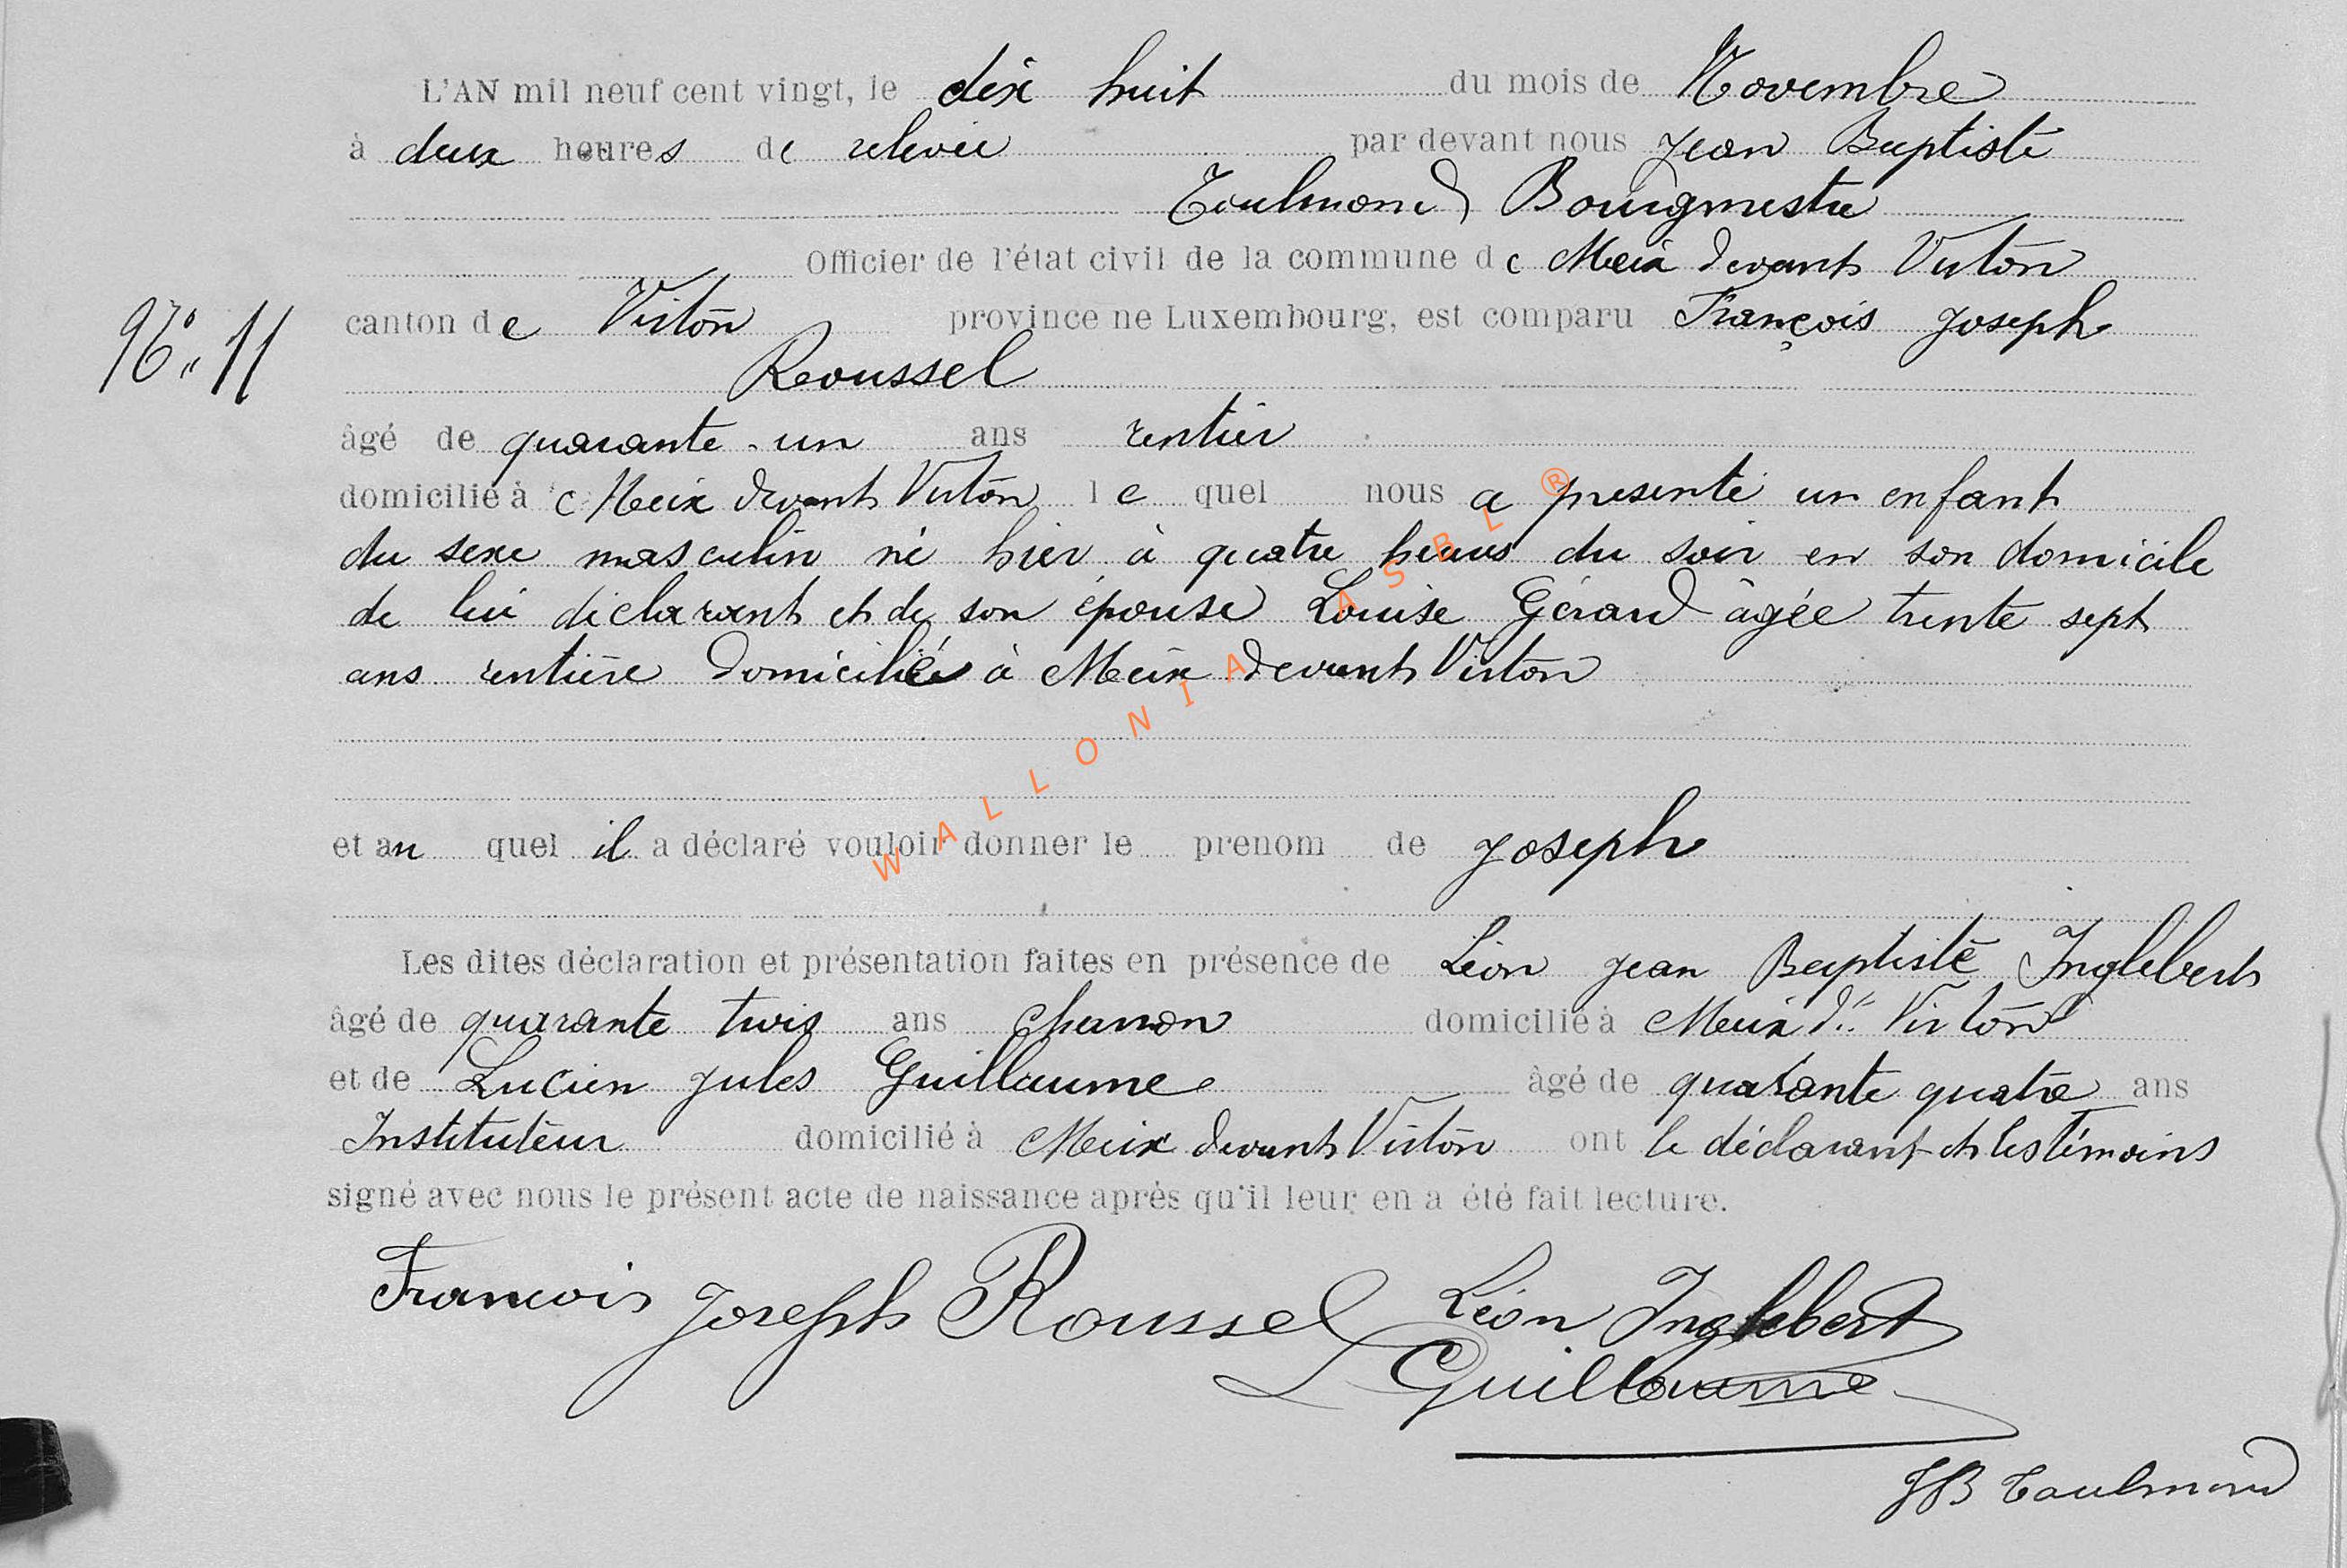 L'AN mil neuf cent vingt, le dix huit du mois de Novembre
à deux heures de relevée par devant nous Jean Baptiste
Toulmond Bourgmestre
Officier de l'état civil de la commune de Meix devant Virton
canton de Virton province ne Luxembourg, est comparu François Joseph
N° 11
Roussel
âgé de quarante-un ans rentier
domicilié à Meix devant Virton lequel nous a présenté un enfant
du sexe masculin né hier à quatre heures du soir en son domicile
de lui déclarant et de son épouse Louise Gérard âgée trente sept
ans rentière domiciliés à Meix devant Virton
et au quel il a déclaré vouloir donner le prenom de Joseph
Les dites déclaration et présentation faites en présence de Léon Jean Baptiste Inglebert
âgé de quarante trois ans domicilié à Meix dt Virton
et de Lucien Jules Guillaume âgé de quarante quatre ans
Instituteur domicilié à Meix devant Virton ont le déclarant et les témoins
signé avec nous le présent acte de naissance après qu'il leur en a été fait lecture.
François Joseph Roussel Léon Inglebert
L Guillaume
JB Toulmond
WALLONIA ASBL ®